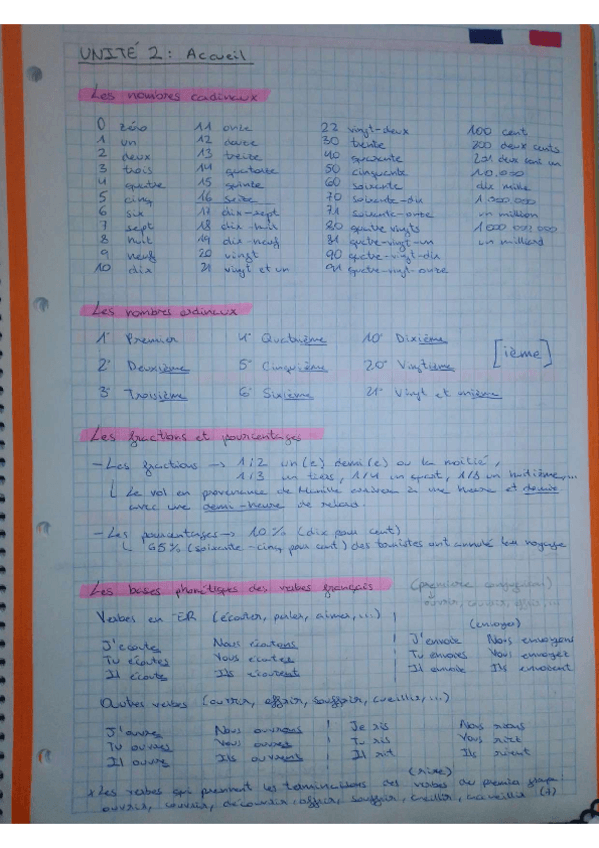 UNITÉ 2: Accueil
Les nombres cadinaux
0 zéro 11 onze 22 vingt-deux 100 cent
1 un 12 douze 30 trente 200 deux cents
2 deux 13 treize 40 quarante 201 deux cent un
3 trois 14 quatorze 50 cinquante 10.000
4 quatre 15 quinze 60 soixante dix mille
5 cinq 16 seize 70 soixante-dix 1.000.000
6 six 17 dix-sept 71 soixante-onze un million
7 sept 18 dix-huit 80 quatre vingts 1 000 000 000
8 huit 19 dix-neuf 81 quatre-vingt-un un milliard
9 neuf 20 vingt 90 quatre-vingt-dix
10 dix 21 vingt et un 91 quatre-vingt-onze
Les nombres ordinaux
1° Premier 4° Quatrième 10° Dixième
[ième]
2° Deuxième 5° Cinquième 20° Vingtième
3° Troisième 6° Sixième 21° Vingt et unième
Les fractions et pourcentages
- Les fractions → 1/2 un(e) demi(e) ou la moitié,
1/3 un tiers, 1/4 un quart, 1/8 un huitième,...
Le vol en provenance de Manille arrivera à une heure et demie
avec une demi-heure de retard.
- Les pourcentages → 10% (dix pour cent)
65% (soixante-cinq pour cent) des touristes ont annulé leur voyage
Les bases phonétiques des verbes français (première conjugaison)
ouvrir, courir,
Verbes en ER (écouter, parler, aimer,...)
(envoyer)
J'écoute Nous écoutons J'envoie Nous envoyons
Tu écoutes Vous écoutez Tu envoies Vous envoyez
Il écoute Ils écoutent Il envoie Ils envoient
Autres verbes (ouvrir, offrir, souffrir, cueillir,...)
J'ouvre Nous ouvrons Je ris Nous rions
Tu ouvres Vous ouvrez Tu ris Vous riez
Il ouvre Ils ouvrent Il rit Ils rient
(rire)
* Les verbes qui prennent les terminaisons des verbes du premier groupe:
ouvrir, couvrir, découvrir, offrir, souffrir, cueillir,